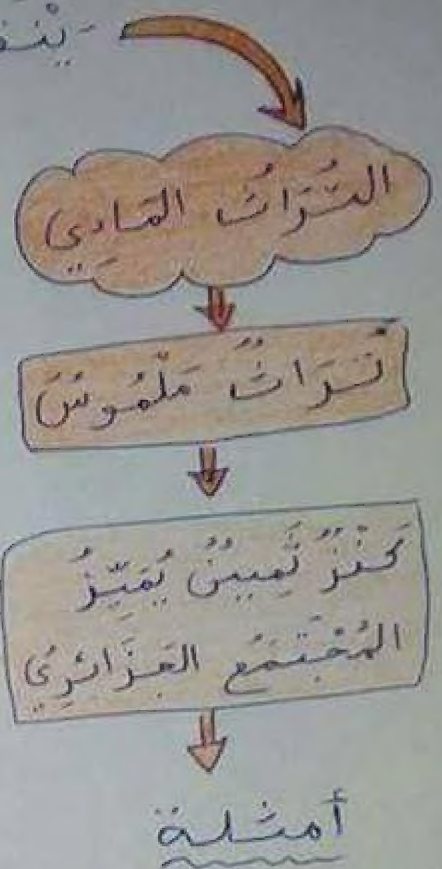 التُّرَاثُ المَادِي
تُرَاثٌ مَلْمُوسٌ
كَنْزٌ ثَمِينٌ يُمَيِّزُ
المُجْتَمَع الجَزَائِرِيُ
أمثلة